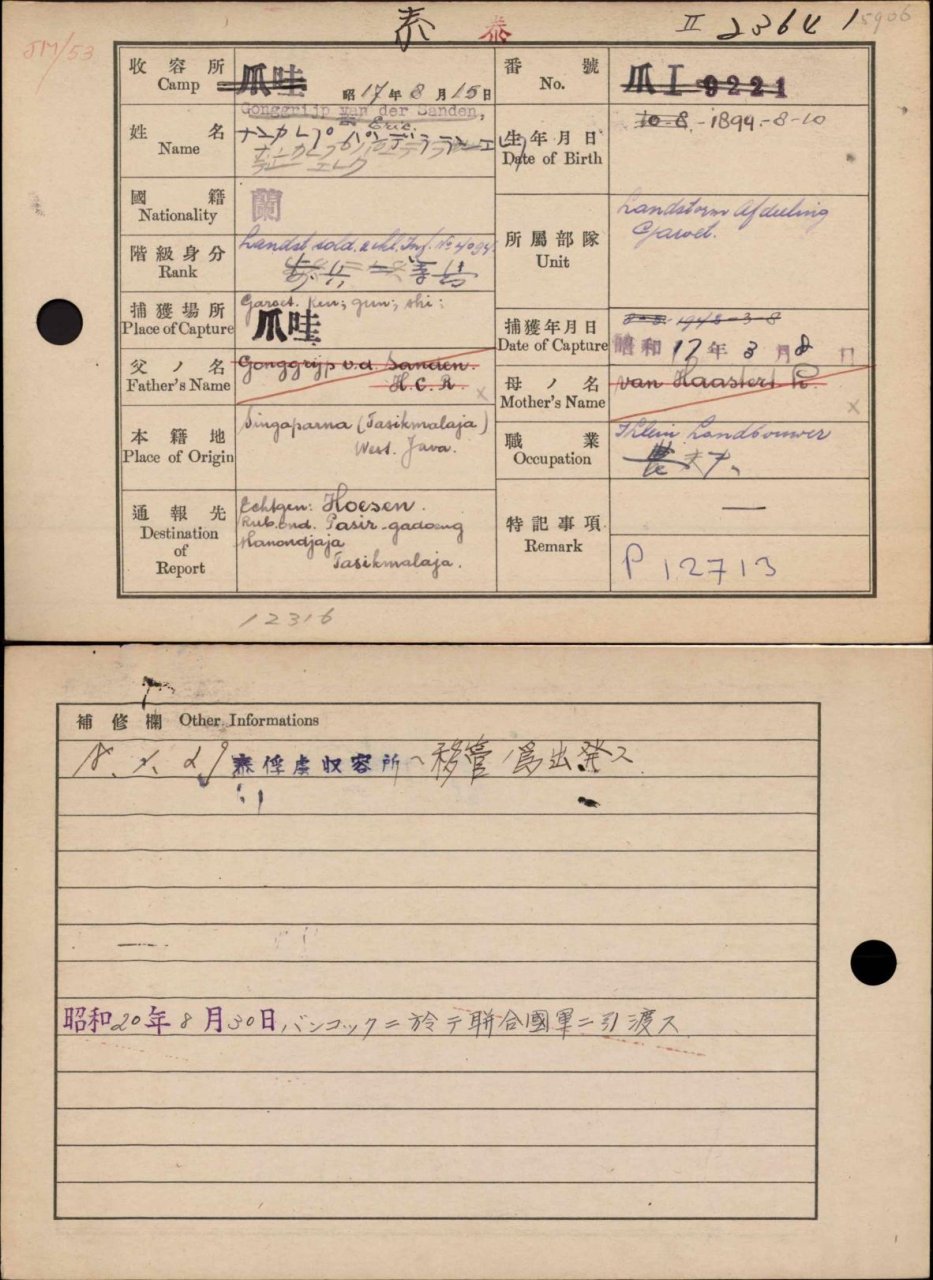 泰 泰 II 23641 5906
JM/53
收容所 Camp 爪哇 昭17年8月15日
番號 No. 爪I 9221
姓名 Name Gonggrijp van der Sanden, Eric.
生年月日 Date of Birth 10-8.-1899.-8-10
國籍 Nationality 蘭
階級身分 Rank Landst. sold.
所屬部隊 Unit Landstorm Afdeeling Garoet.
捕獲場所 Place of Capture Garoet. ken; gun; shi:
爪哇
捕獲年月日 Date of Capture
昭和17年3月8日
父ノ名 Father's Name Gonggrijp v.d. Sanden.
H.C.R.
母ノ名 Mother's Name van Haastert
本籍地 Place of Origin Singaparna (Tasikmalaja)
West. Java.
職業 Occupation Klein Landbouwer
農夫
通報先 Destination of Report Echtgen: Hoesen.
Pasir-gadoeng
Manondjaja
Tasikmalaja.
特記事項 Remark —
P 12713
12316
補修欄 Other Informations
18. 1. 29 泰俘虜収容所ヘ移管ノ爲出発ス
昭和20年8月30日バンコックニ於テ聯合國軍ニ引渡ス